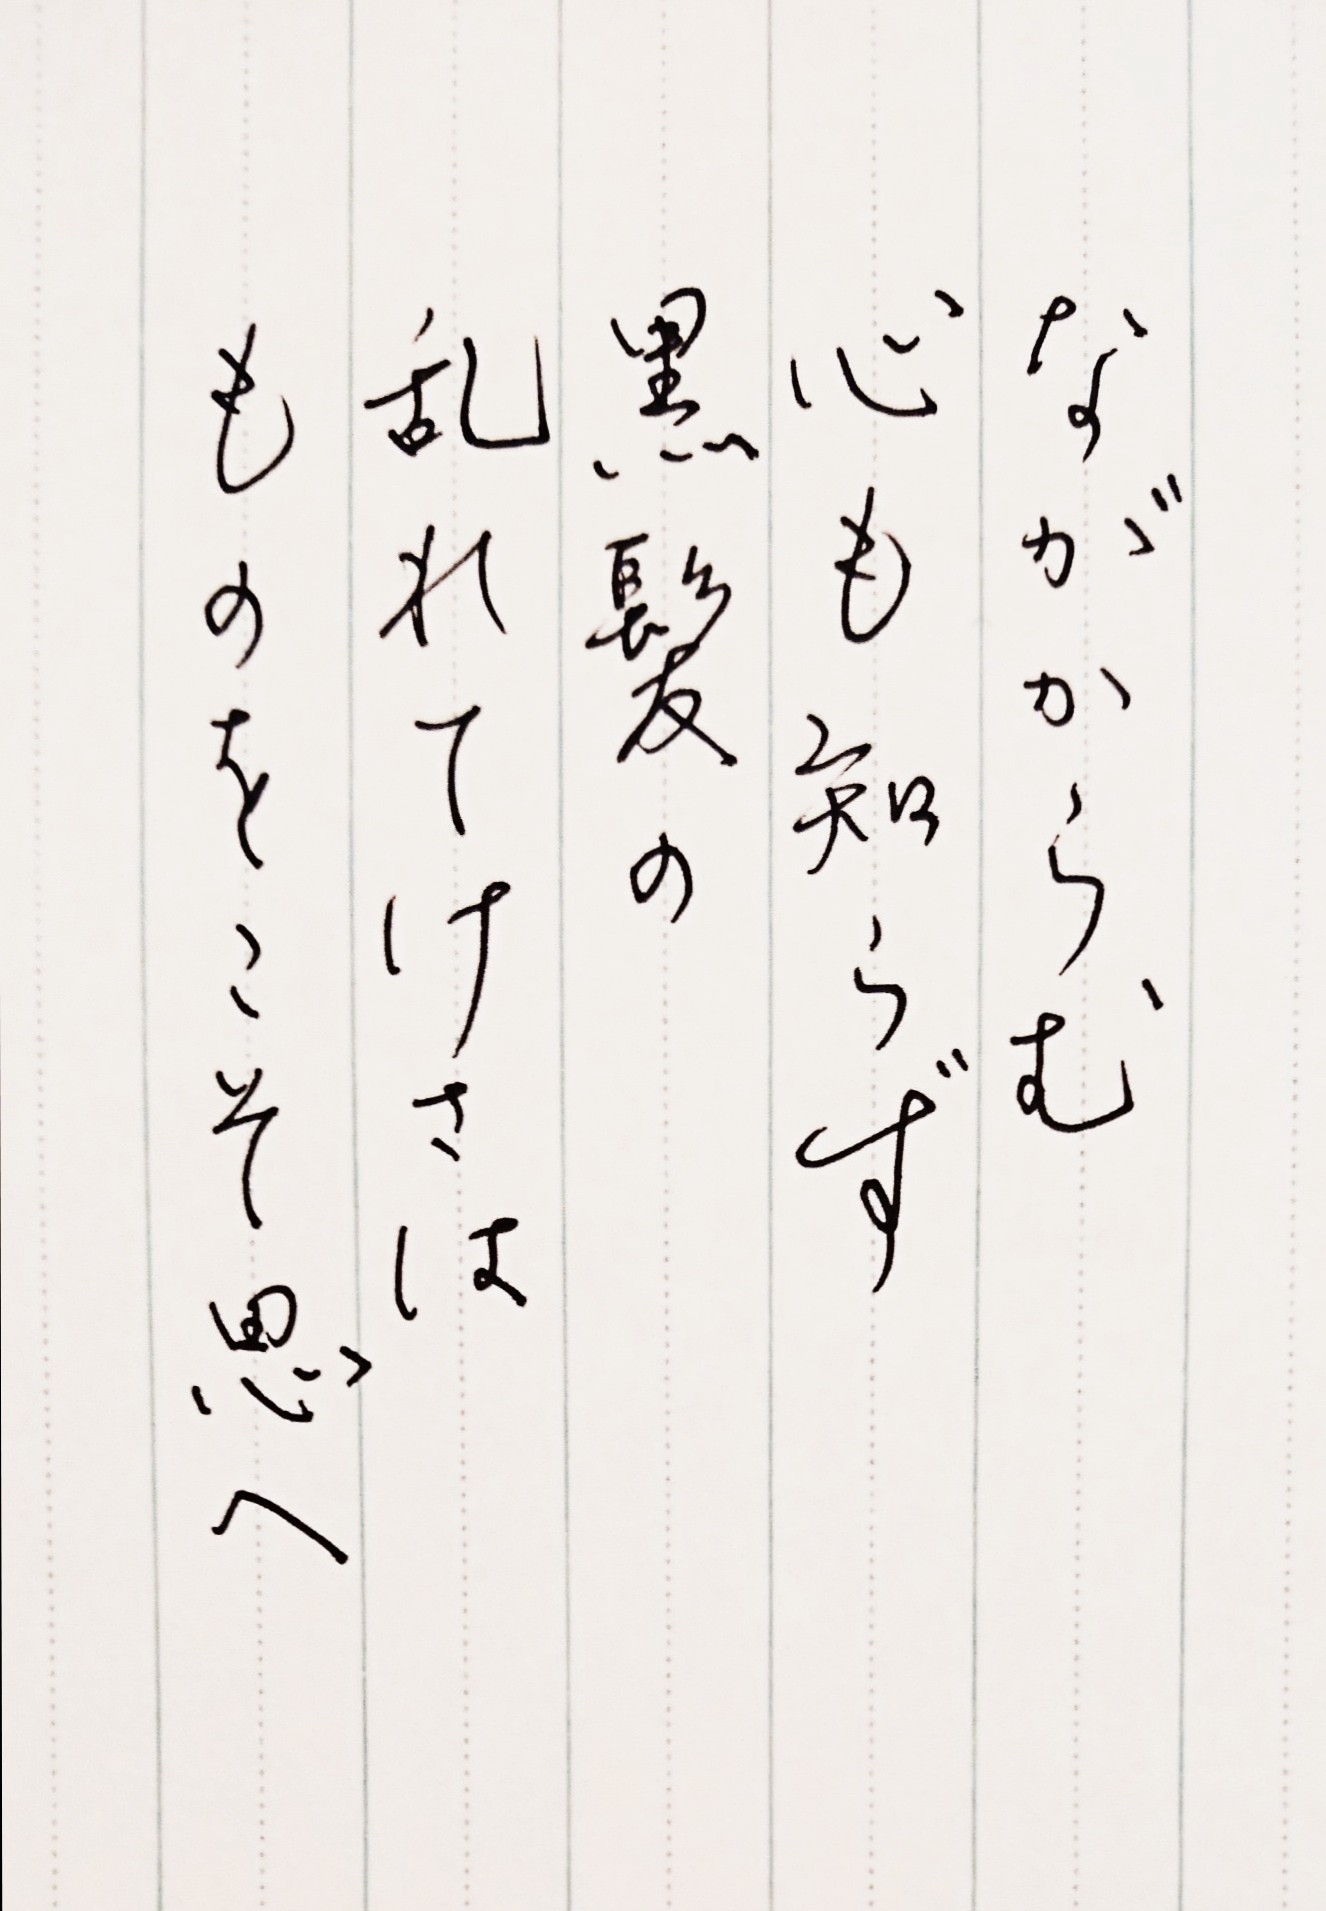 ながからむ
心も知らず
黒髪の
乱れてけさは
ものをこそ思へ